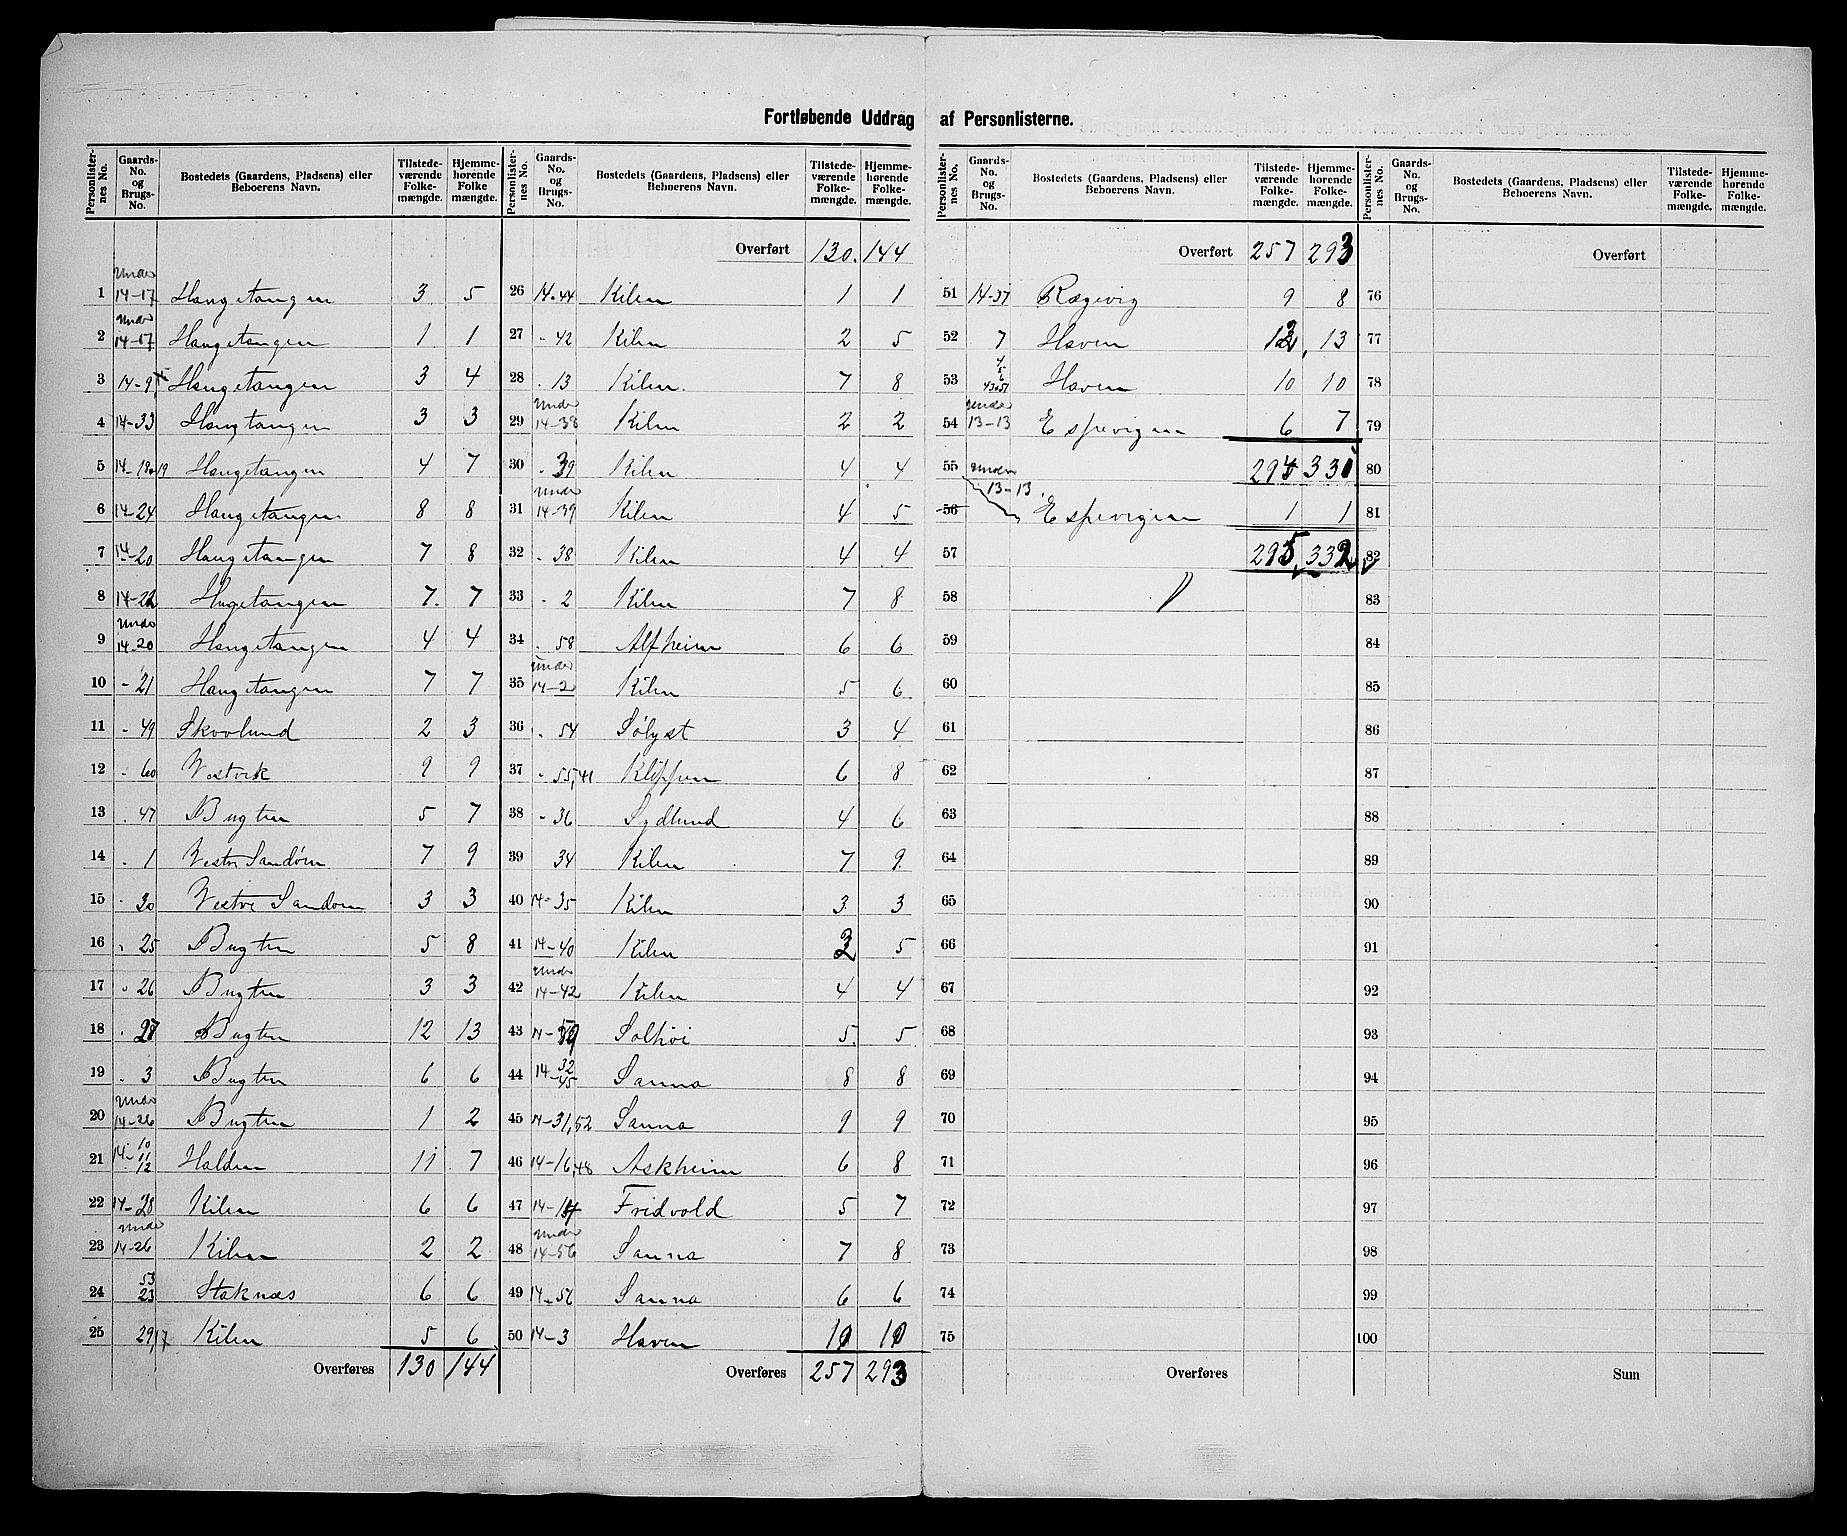 Fortløbende Uddrag af Personlisterne.
Personlister-nes No. Gaards-No. og Brugs-No. Bostedets (Gaardens, Pladsens) eller Beboerens Navn. Tilstede-værende Folke-mængde. Hjemme-hørende Folke mængde.
1 Under 14-17 Haugetangen 3 5
2 Under 14-17 Haugetangen 1 1
3 14-9 Haugetangen 3 4
4 14-33 Haugtangen 3 3
5 14-18 19 Haugetangen 4 7
6 14-24 Haugetangen 8 8
7 14-20 Haugetangen 7 8
8 14-22 Hugetangen 7. 7
9 Under 14-20 Haugetangen 4 4
10 - 21 Haugetangen 7 7
11 - 49 Skovlund 2 3
12 - 60 Vestvik 9 9
13 . 47 Bugten 5 7
14 . 1 Vestre Sandøen 7 9
15 . 30 Vestre Sandøen 3 3
16 . 25 Bugten 5 8
17 . 26 Bugten 3 3
18 . 27 Bugten 12 13
19 . 3 Bugten 6 6
20 Under 14-26 Bugten 1 2
21 14- 10 11 12 Halden 11 7
22 14-28 Kilen 6 6
23 Under 14-26 Kilen 2 2
24 53 23 Staknæs 6 6
25 29,17 Kilen 5 6
Overføres 130 144
Personlister-nes No. Gaards-No. og Brugs-No. Bostedets (Gaardens, Pladsens) eller Beboerens Navn. Tilstede-værende Folke-mængde. Hjemme-hørende Folke-mængde.
Overført 130. 144
26 14-44 Kilen 1 1
27 - 42 Kilen 2 5
28 . 13 Kilen. 7 8
29 Under 14-38 Kilen 2 2
30 . 39 Kilen 4 4
31 Under 14-39 Kilen 4 5
32 - 38 Kilen 4 4
33 - 2 Kilen 7 8
34 . 58 Alfheim 6 6
35 Under 14-2 Kilen 5 6
36 . 54 Sølyst 3 4
37 - 55,41 Klippen 6 8
38 - 36 Sydlund 4 6
39 34 Kilen 7 9
40 14-35 Kilen 3 3
41 14-40 Kilen 3 5
42 Under 14-42 Kilen 4 4
43 14-59 Solhøi 5. 5
44 14- 32 45 Sanna 8 8
45 14-31,52 Sanna 9 9
46 14-16,48 Askheim 6 8
47 14-14 Fridvold 5 7
48 Under 14-56 Sanna 7 8
49 14-56 Sanna 6 6
50 14-3 Haven 10 10
Overføres 257 293
Personlister-nes No. Gaards-No. og Brugs-No. Bostedets (Gaardens, Pladsens) eller Beboerens Navn. Tilstede-værende Folke-mængde. Hjemme-hørende Folke-mængde.
Overført 257 293
51 14-37 Rægevig 9 8
52 7 Haven 12, 13
53 4 5 6 43-57 Haven 10 10
54 Under 13-13 Espevigen 6 7
55 Under 13-13. 294 331
56 Espevigen 1 1
57 295, 332
58
59
60
61
62
63
64
65
66
67
68
69
70
71
72
73
74
75
Overføres
Personlister-nes No. Gaards-No. og Brugs-No. Bostedets (Gaardens, Pladsens) eller Beboerens Navn. Tilstede-værende Folke-mængde. Hjemme-hørende Folke-mængde.
Overført
76
77
78
79
80
81
82
83
84
85
86
87
88
89
90
91
92
93
94
95
96
97
98
99
100
Sum